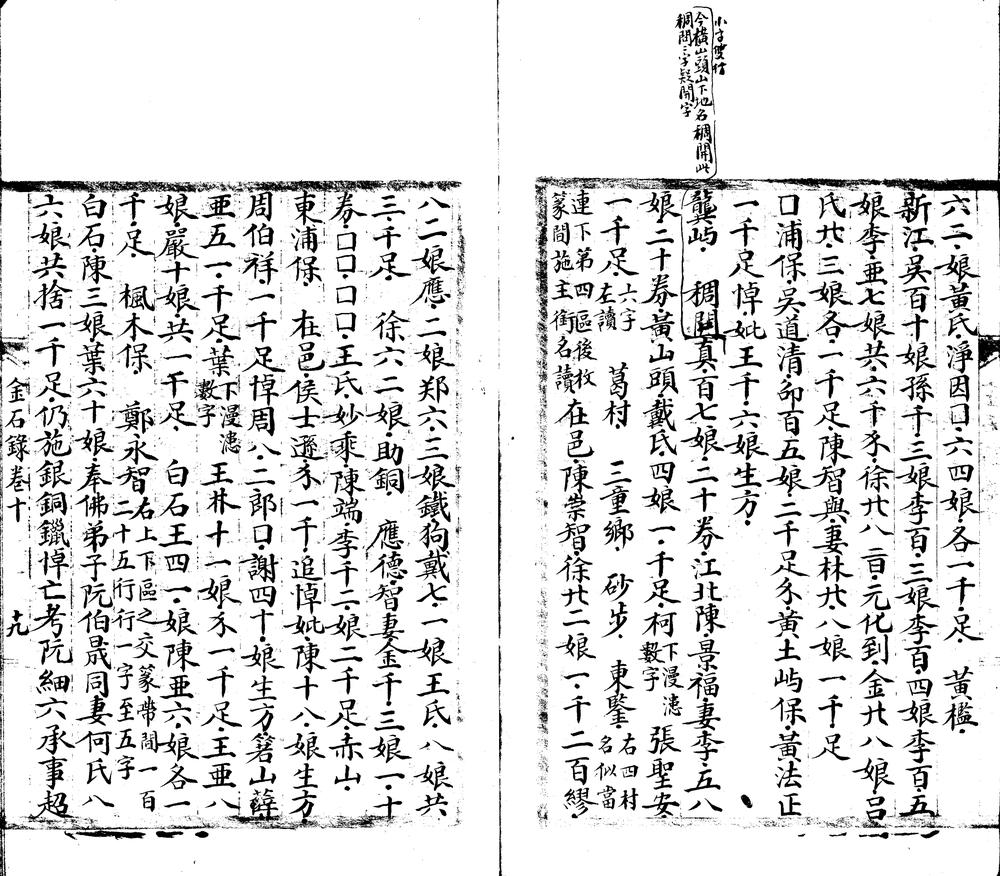 小字雙行
今橫山頭山下地名稠開此
稠問三字疑開字
六二娘黃氏淨因口六四娘各一千足　黃㯺
新江吳百十娘孫千三娘李百三娘李百四娘李百五
娘李亜七娘共六千尒徐廿八二百元化到金廿八娘呂
氏廿三娘各一千足陳智與妻林廿八娘一千足
口浦保吳道清弟百五娘二千足尒黃土屿保黃法正
一千足悼妣王千六娘生方
龔屿　稠開真百七娘二十券江北陳景福妻李五八
娘二十券黃山頭戴氏四娘一千足柯下漫漶數字張聖安
一千足六字左讀　葛村　三童鄉　砂步　東𨩐右四村名似當
連下第四區後枚篆間施主銜名讀在邑陳崇智徐廿二娘一千二百繆
八二娘應二娘郑六三娘鐵狗戴七一娘王氏八娘共
三千足　徐六二娘助銅　應德智妻金千三娘一十
券口口口口王氏妙乘陳端李千二娘二千足赤山
東浦保　在邑侯士遜尒一千追悼妣陳十八娘生方
周伯祥一千足悼周八二郎口謝四十娘生方箬山薛
亜五一千足葉下漫漶數字王林十一娘尒一千足王亜八
娘嚴十娘共一千足　白石王四一娘陳亜六娘各一
千足　楓木保　鄭永智右上下區之交篆帶間一百二十五行行一字至五字
白石陳三娘葉六十娘奉佛弟子阮伯晟同妻何氏八
六娘共捨一千足仍施銀銅鑞悼亡考阮細六承事超
金石錄卷十　十九